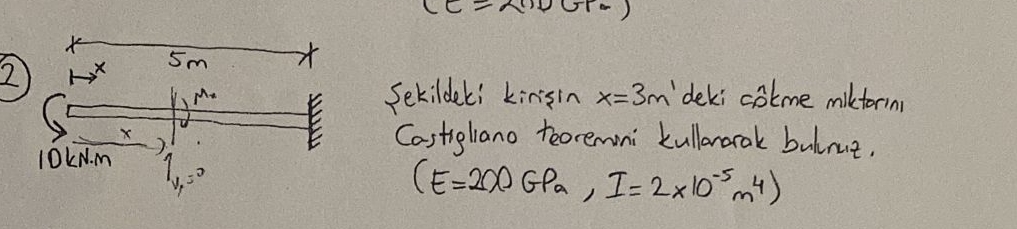 (E=200 GPa)
2
5m
x
x
10kN.m
Şekildeki kirişin x=3m'deki çökme miktarını
Castigliano teoremini kullanarak bulunuz.
(E=200 GPa, I=2x10⁻⁵m⁴)